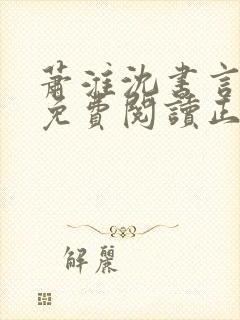 蕭淮沈書言
免費閱讀正
解麗